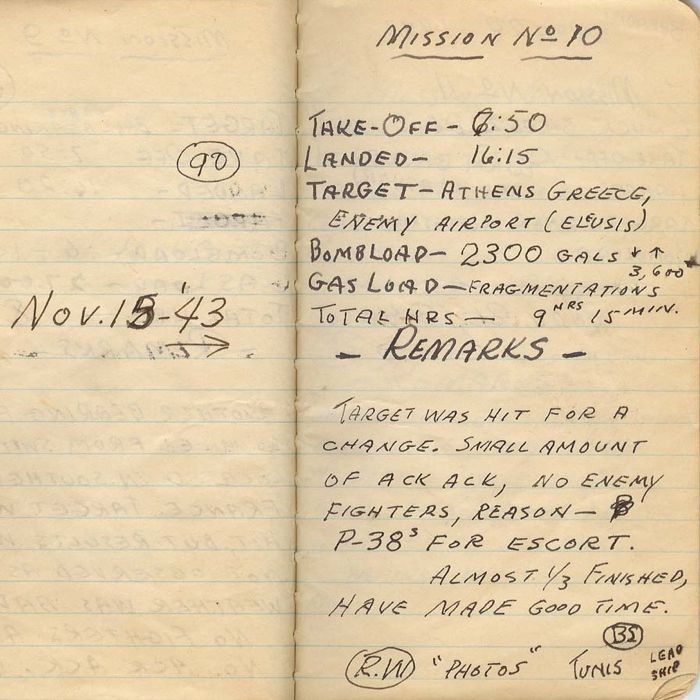 90
Nov. 15-'43
MISSION Nº 10
TAKE-OFF - 6:50
LANDED- 16:15
TARGET - ATHENS GREECE,
ENEMY AIRPORT (ELEUSIS)
BOMBLOAD- 2300 GALS ↓ ↑
3,600
GAS LOAD - FRAGMENTATIONS
TOTAL HRS - 9 HRS 15 MIN.
- REMARKS -
TARGET WAS HIT FOR A
CHANGE. SMALL AMOUNT
OF ACK ACK, NO ENEMY
FIGHTERS, REASON-
P-38s FOR ESCORT.
ALMOST 1/3 FINISHED,
HAVE MADE GOOD TIME.
BS
R.W "PHOTOS" TUNIS LEAD
SHIP